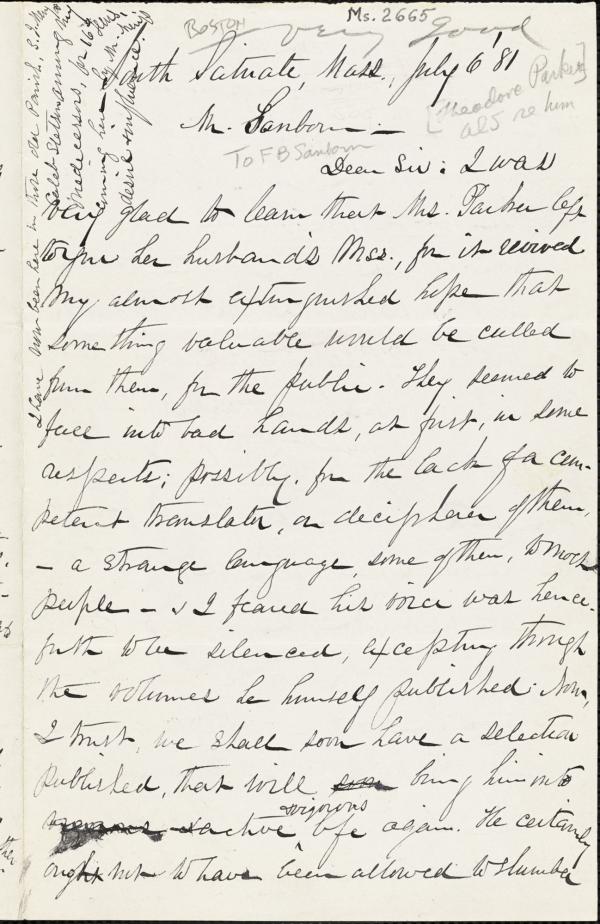 Ms. 2665
BOSTON
very good
South Scituate, Mass., July 6 '81
[Theodore Parker]
ALS re him
Mr. Sanborn -
To F B Sanborn
Dear Sir: I was
very glad to learn that Mrs. Parker left
to you her husband's Mss., for it revived
my almost extinguished hope that
something valuable would be culled
from them, for the public. They seemed to
face into bad hands, at first, in some
respects; possibly, for the lack of a com-
petent translator, or decipherer of them,
- a strange language, some of them, to most
people - & I feared his voice was hence-
forth to be silenced, excepting through
the volumes he himself published: Now,
I trust, we shall soon have a selection
published, that will soon bring him into
active vigorous life again. He certainly
ought not to have been allowed to slumber
I have now been here in those old Parish, S. J. May
predecessors, for 16
desire & influence.